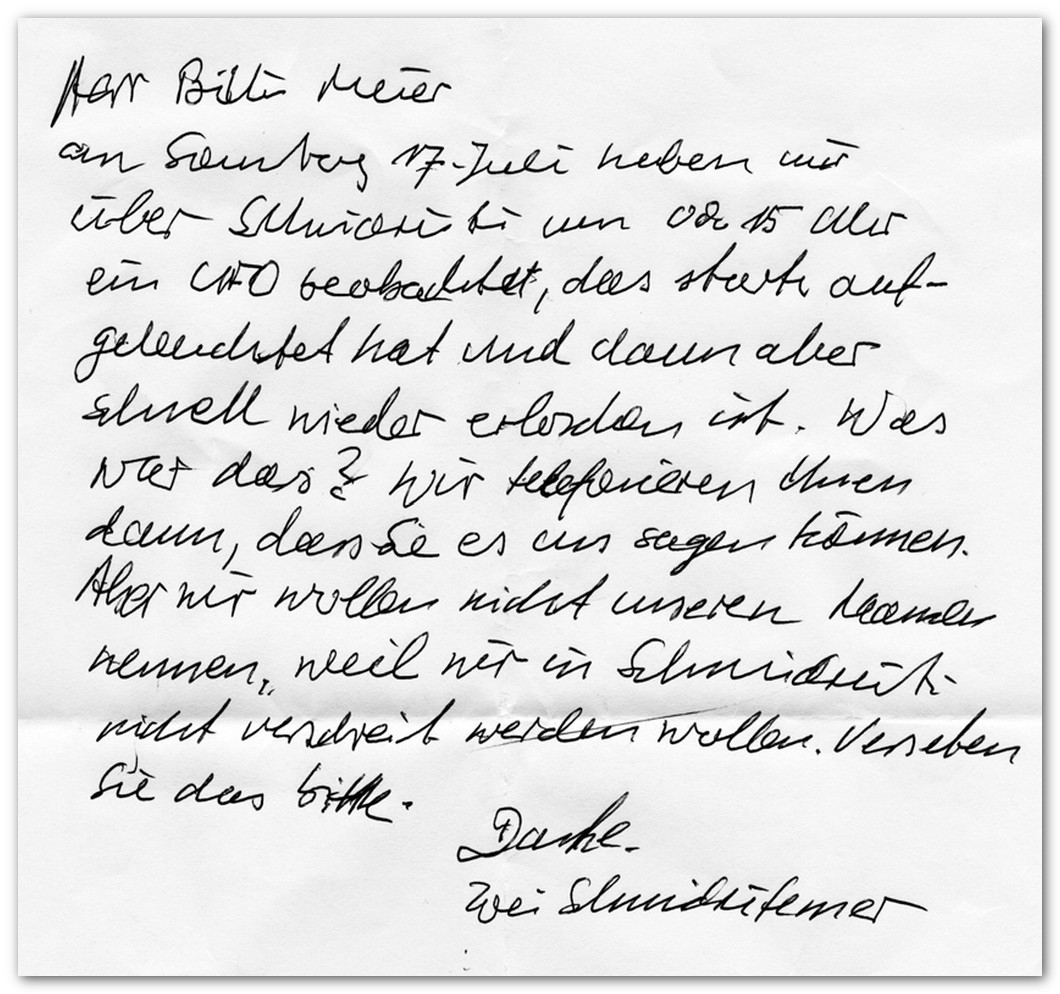 Herr Billi Meier
am Samstag 17. Juli haben wir
über Schmidrüti um 02.15 Uhr
ein UFO beobachtet, das stark auf-
geleuchtet hat und dann aber
schnell wieder erloschen ist. Was
war das? Wir telefonieren Ihnen
dann, dass Sie es uns sagen können.
Aber wir wollen nicht unseren Namen
nennen, weil wir in Schmidrüti
nicht verschreit werden wollen. Versehen
Sie das bitte.
Danke.
Zwei Schmidrütemer